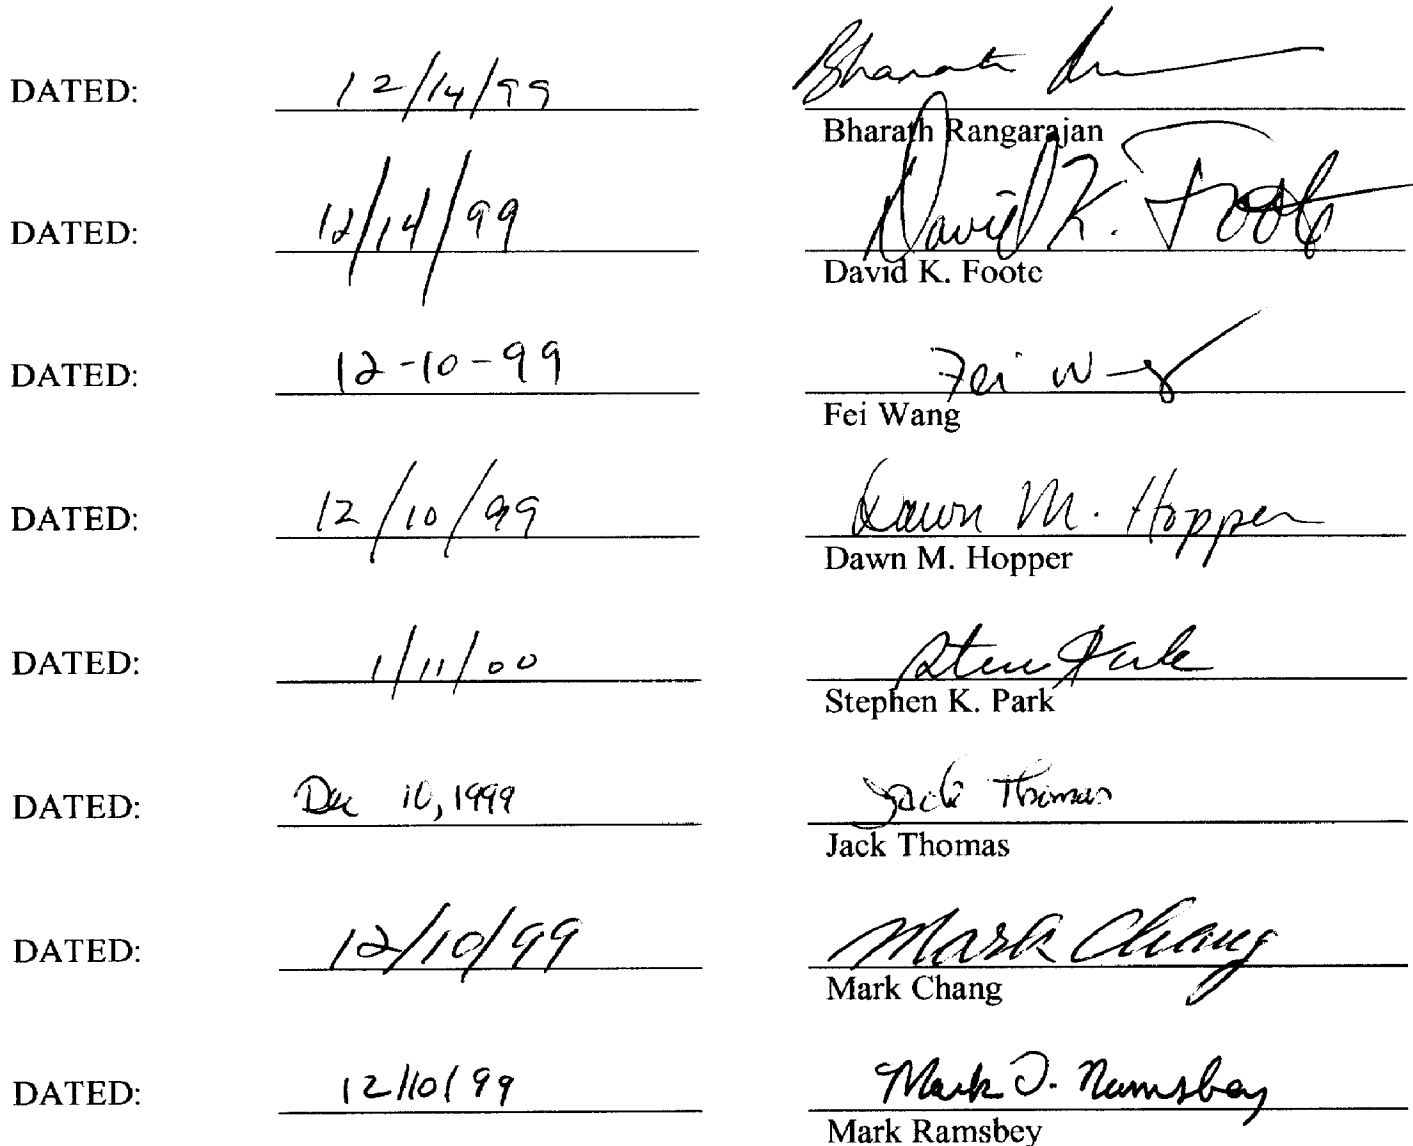 DATED: 12/14/99 Bharath
Bharath Rangarajan
DATED: 12/14/99 David K. Foote
David K. Foote
DATED: 12-10-99 Fei Wang
Fei Wang
DATED: 12/10/99 Dawn M. Hopper
Dawn M. Hopper
DATED: 1/11/00 Steve Park
Stephen K. Park
DATED: Dec 10, 1999 Jack Thomas
Jack Thomas
DATED: 12/10/99 Mark Chang
Mark Chang
DATED: 12/10/99 Mark T. Ramsbey
Mark Ramsbey